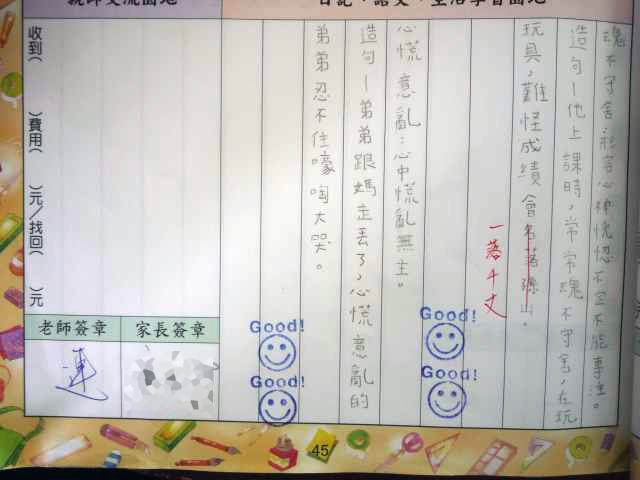 魂不守舍：形容心神恍惚不定不能專注。
造句－他上課時，常常魂不守舍，在玩
玩具，難怪成績會名落孫山。
一落千丈
心慌意亂：心中慌亂無主。
造句－弟弟跟媽走丟了，心慌意亂的
弟弟忍不住嚎啕大哭。
Good!
Good!
Good!
Good!
收到（　）費用（　）元／找回（　）元
老師簽章
家長簽章
連
45